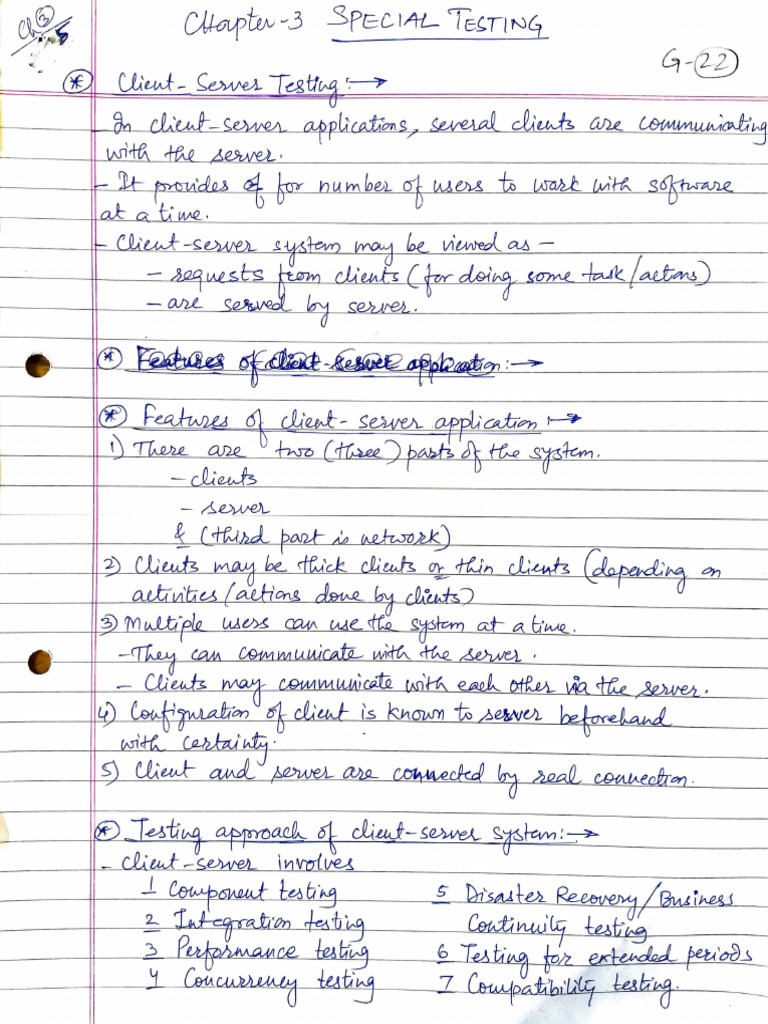 Ch ③
5
Chapter-3 SPECIAL TESTING
G-22
* Client-Server Testing:→
- In client-server applications, several clients are communicating
with the server.
- It provides of for number of users to work with software
at a time.
- Client-server system may be viewed as -
- requests from clients (for doing some task/actions)
- are served by server.
* Features of client-server application:→
* Features of client-server application:→
1) There are two (three) parts of the system.
- clients
- server
& (third part is network)
2) Clients may be thick clients or thin clients (depending on
activities/actions done by clients)
3) Multiple users can use the system at a time.
- They can communicate with the server.
- Clients may communicate with each other via the server.
4) Configuration of client is known to server beforehand
with certainty.
5) Client and server are connected by real connection.
* Testing approach of client-server system:→
- Client-server involves
1 Component testing
2 Integration testing
3 Performance testing
4 Concurrency testing
5 Disaster Recovery/Business
Continuity testing
6 Testing for extended periods
7 Compatibility testing.